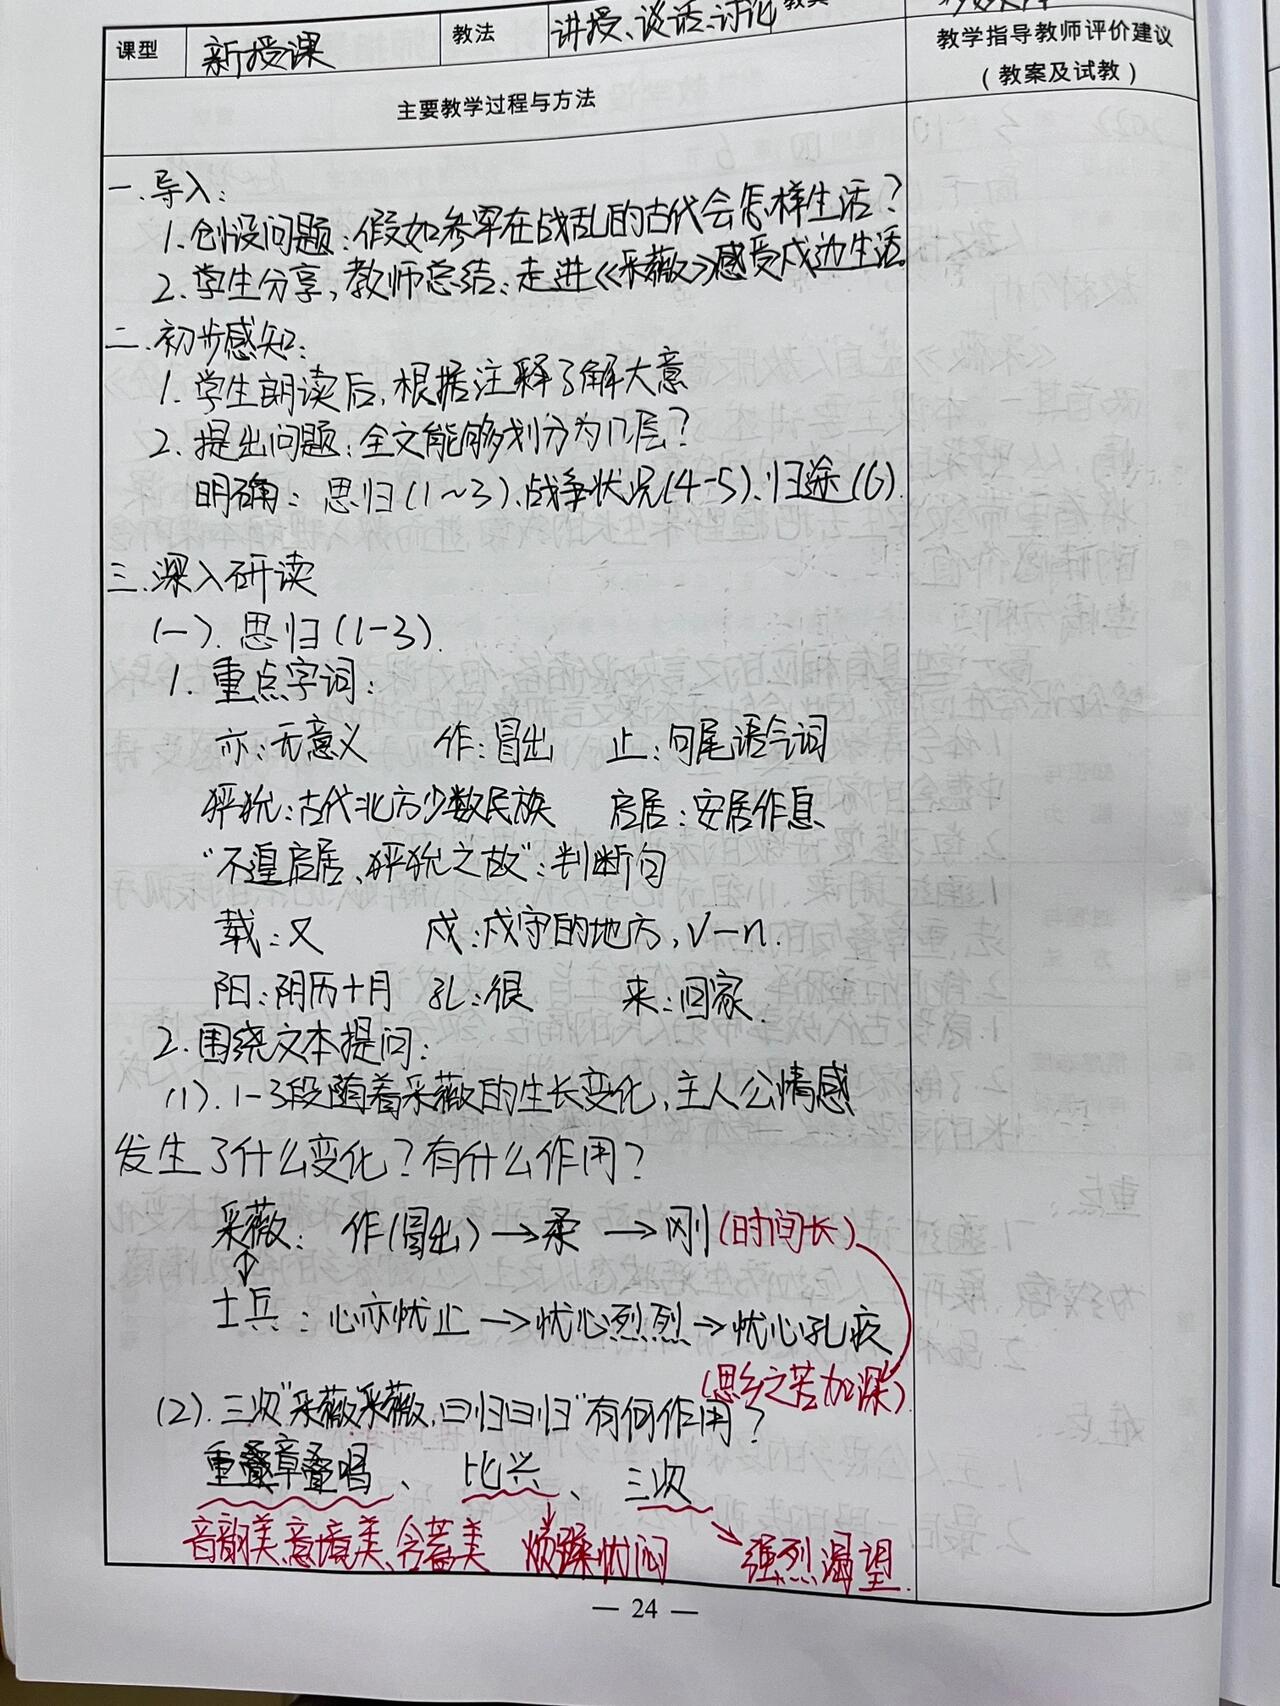 课型 新授课 教法 讲授、谈话、讨论
教学指导教师评价建议
（教案及试教）
主要教学过程与方法
一.导入:
1.创设问题:假如参军在战乱的古代会怎样生活?
2.学生分享,教师总结:走进《采薇》感受戍边生活。
二.初步感知:
1.学生朗读后,根据注释了解大意
2.提出问题:全文能够划分为几层?
明确:思归(1~3)、战争状况(4-5)、归途(6)
三.深入研读
(一).思归(1-3)
1.重点字词:
亦:无意义 作:冒出 止:句尾语令词
猃狁:古代北方少数民族 启居:安居作息
“不遑启居,猃狁之故”:判断句
载:又 戍:戍守的地方,v-n.
阳:阴历十月 孔:很 来:回家.
2.围绕文本提问:
(1).1-3段随着采薇的生长变化,主人公情感
发生了什么变化?有什么作用?
采薇: 作(冒出)→柔→刚(时间长)
士兵:心亦忧止→忧心烈烈→忧心孔疚
(思乡之苦加深)
(2).三次“采薇采薇,曰归曰归”有何作用?
重叠章叠唱、比兴、三次
音韵美、意境美、含蓄美 烦躁忧闷 强烈渴望.
— 24 —